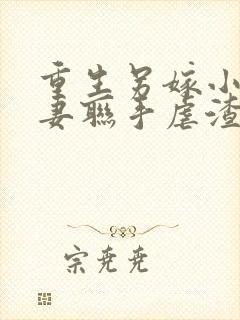 重生另嫁小
妻聯手虐渣
宗堯堯